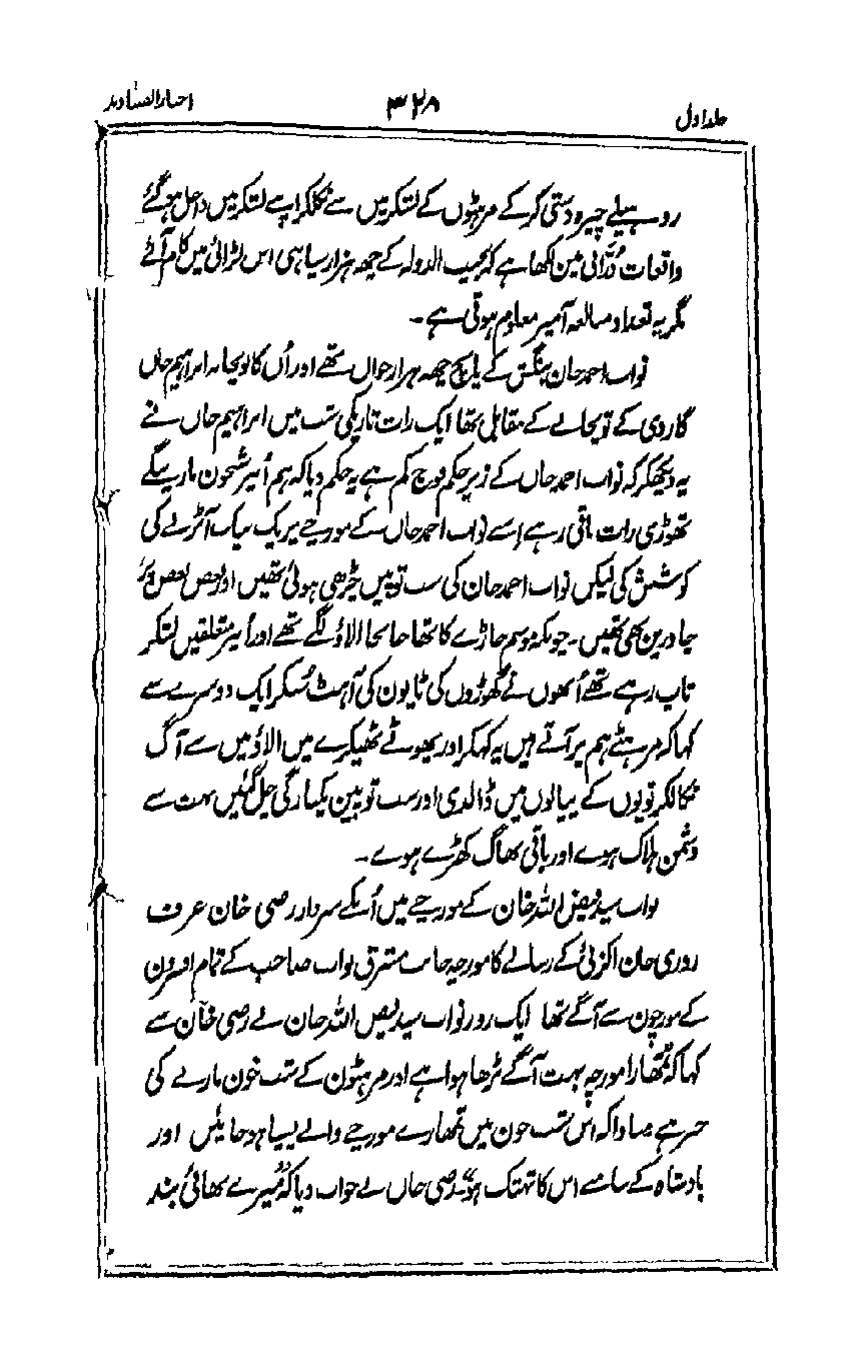 جلد اول ۳۲۸ اخبار الصنادید
روہیلے چیرہ دستی کر کے مرہٹوں کے لشکر میں سے نکلکر اپنے لشکر میں داخل ہو گئے
واقعات دُرّانی مین لکھا ہے کہ نجیب الدولہ کے چھ ہزار سپاہی اس لڑائی میں کام آئے
مگر یہ تعداد مبالغہ آمیز معلوم ہوتی ہے۔
نواب احمد خان بنگش کے پانچ چھہ ہزار جوان تھے اور اُن کا توپخانہ ابراہیم خاں
گاردی کے توپخانے کے مقابل تھا ایک رات تاریکی شب میں ابراہیم خاں نے
یہ دیکھکر کہ نواب احمد خاں کے زیر حکم فوج کم ہے یہ حکم دیا کہ ہم اُنپر شبخون مارینگے
تھوڑی رات باقی رہے اسنے نواب احمد خاں کے مورچے پر یک بیک آ کی
کوشش کی لیکن نواب احمد خان کی سب توپیں چڑھی ہوئی تھیں اور بعض بعض پر
چادرین بھی تھیں۔ چونکہ موسم جاڑے کا تھا جا بجا الاؤ لگے تھے اور اُنپر متعلقین لشکر
تاپ رہے تھے اُنھوں نے گھوڑوں کی ٹاپون کی آہٹ سُنکر ایک دوسرے سے
کہا کہ مرہٹے ہم پر آتے ہیں یہ کہکر اور پھوٹے ٹھیکرے میں الاؤ میں سے آگ
نکالکر توپوں کے پیالوں میں ڈالدی اور سب توپین یکبارگی چل گئیں بہت سے
دشمن ہلاک ہوے اور باقی بھاگ کھڑے ہوے۔
نواب سید فیض اللہ خان کے مورچے میں اُنکے سردار رضی خان عرف
روری خان اکزئی کے رسالے کا مورچہ جانب مشرق نواب صاحب کے تمام افسرون
کے مورچون سے آگے تھا ایک روز نواب سید فیض اللہ خان نے رضی خان سے
کہا کہ تمھارا مورچہ بہت آگے بڑھا ہوا ہے اور مرہٹون کے شب خون مارنے کی
خبر ہے مبادا کہ اس شب خون میں تمھارے مورچے والے پسپا ہو جائیں اور
بادشاہ کے سامنے اس کا تہتک ہو۔ رضی خاں نے جواب دیا کہ میرے بھائی بند